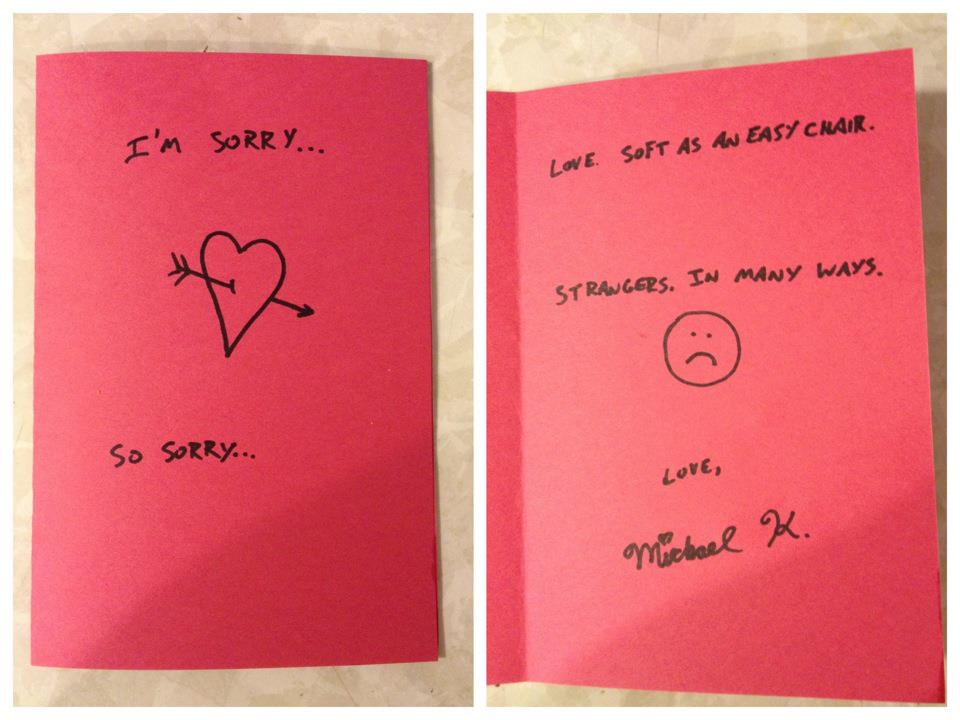 I'M SORRY...
SO SORRY...
LOVE. SOFT AS AN EASY CHAIR.
STRANGERS. IN MANY WAYS.
LOVE,
Michael K.